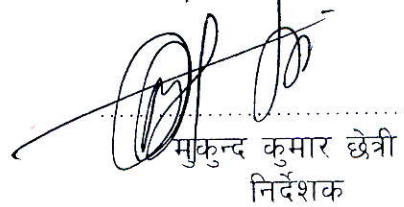 मुकुन्द कुमार छेत्री
निर्देशक